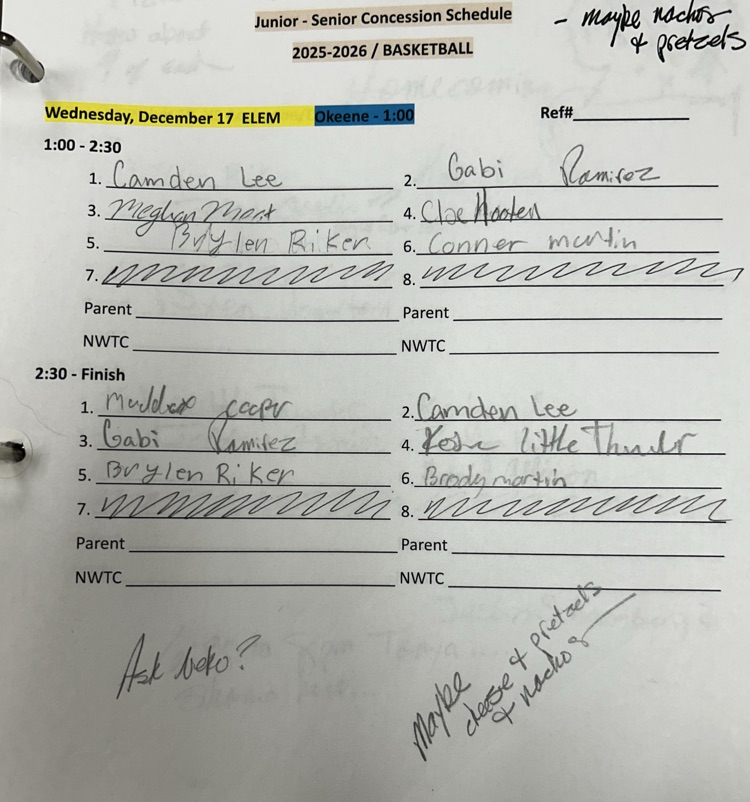 Junior - Senior Concession Schedule
- maybe nachos
& pretzels
2025-2026 / BASKETBALL
Wednesday, December 17 ELEM Okeene - 1:00 Ref#
1:00 - 2:30
1. Camden Lee 2. Gabi Ramirez
3. Meghan Mont 4. Cloe Hooten
5. Brylen Riker 6. Conner martin
7. 8.
Parent Parent
NWTC NWTC
2:30 - Finish
1. Maddox 2. Camden Lee
3. Gabi Ramirez 4. little Thunder
5. Brylen Riker 6. Brody martin
7. 8.
Parent Parent
NWTC NWTC
Ask beko?
Maybe
cheese & pretzels
& nachos